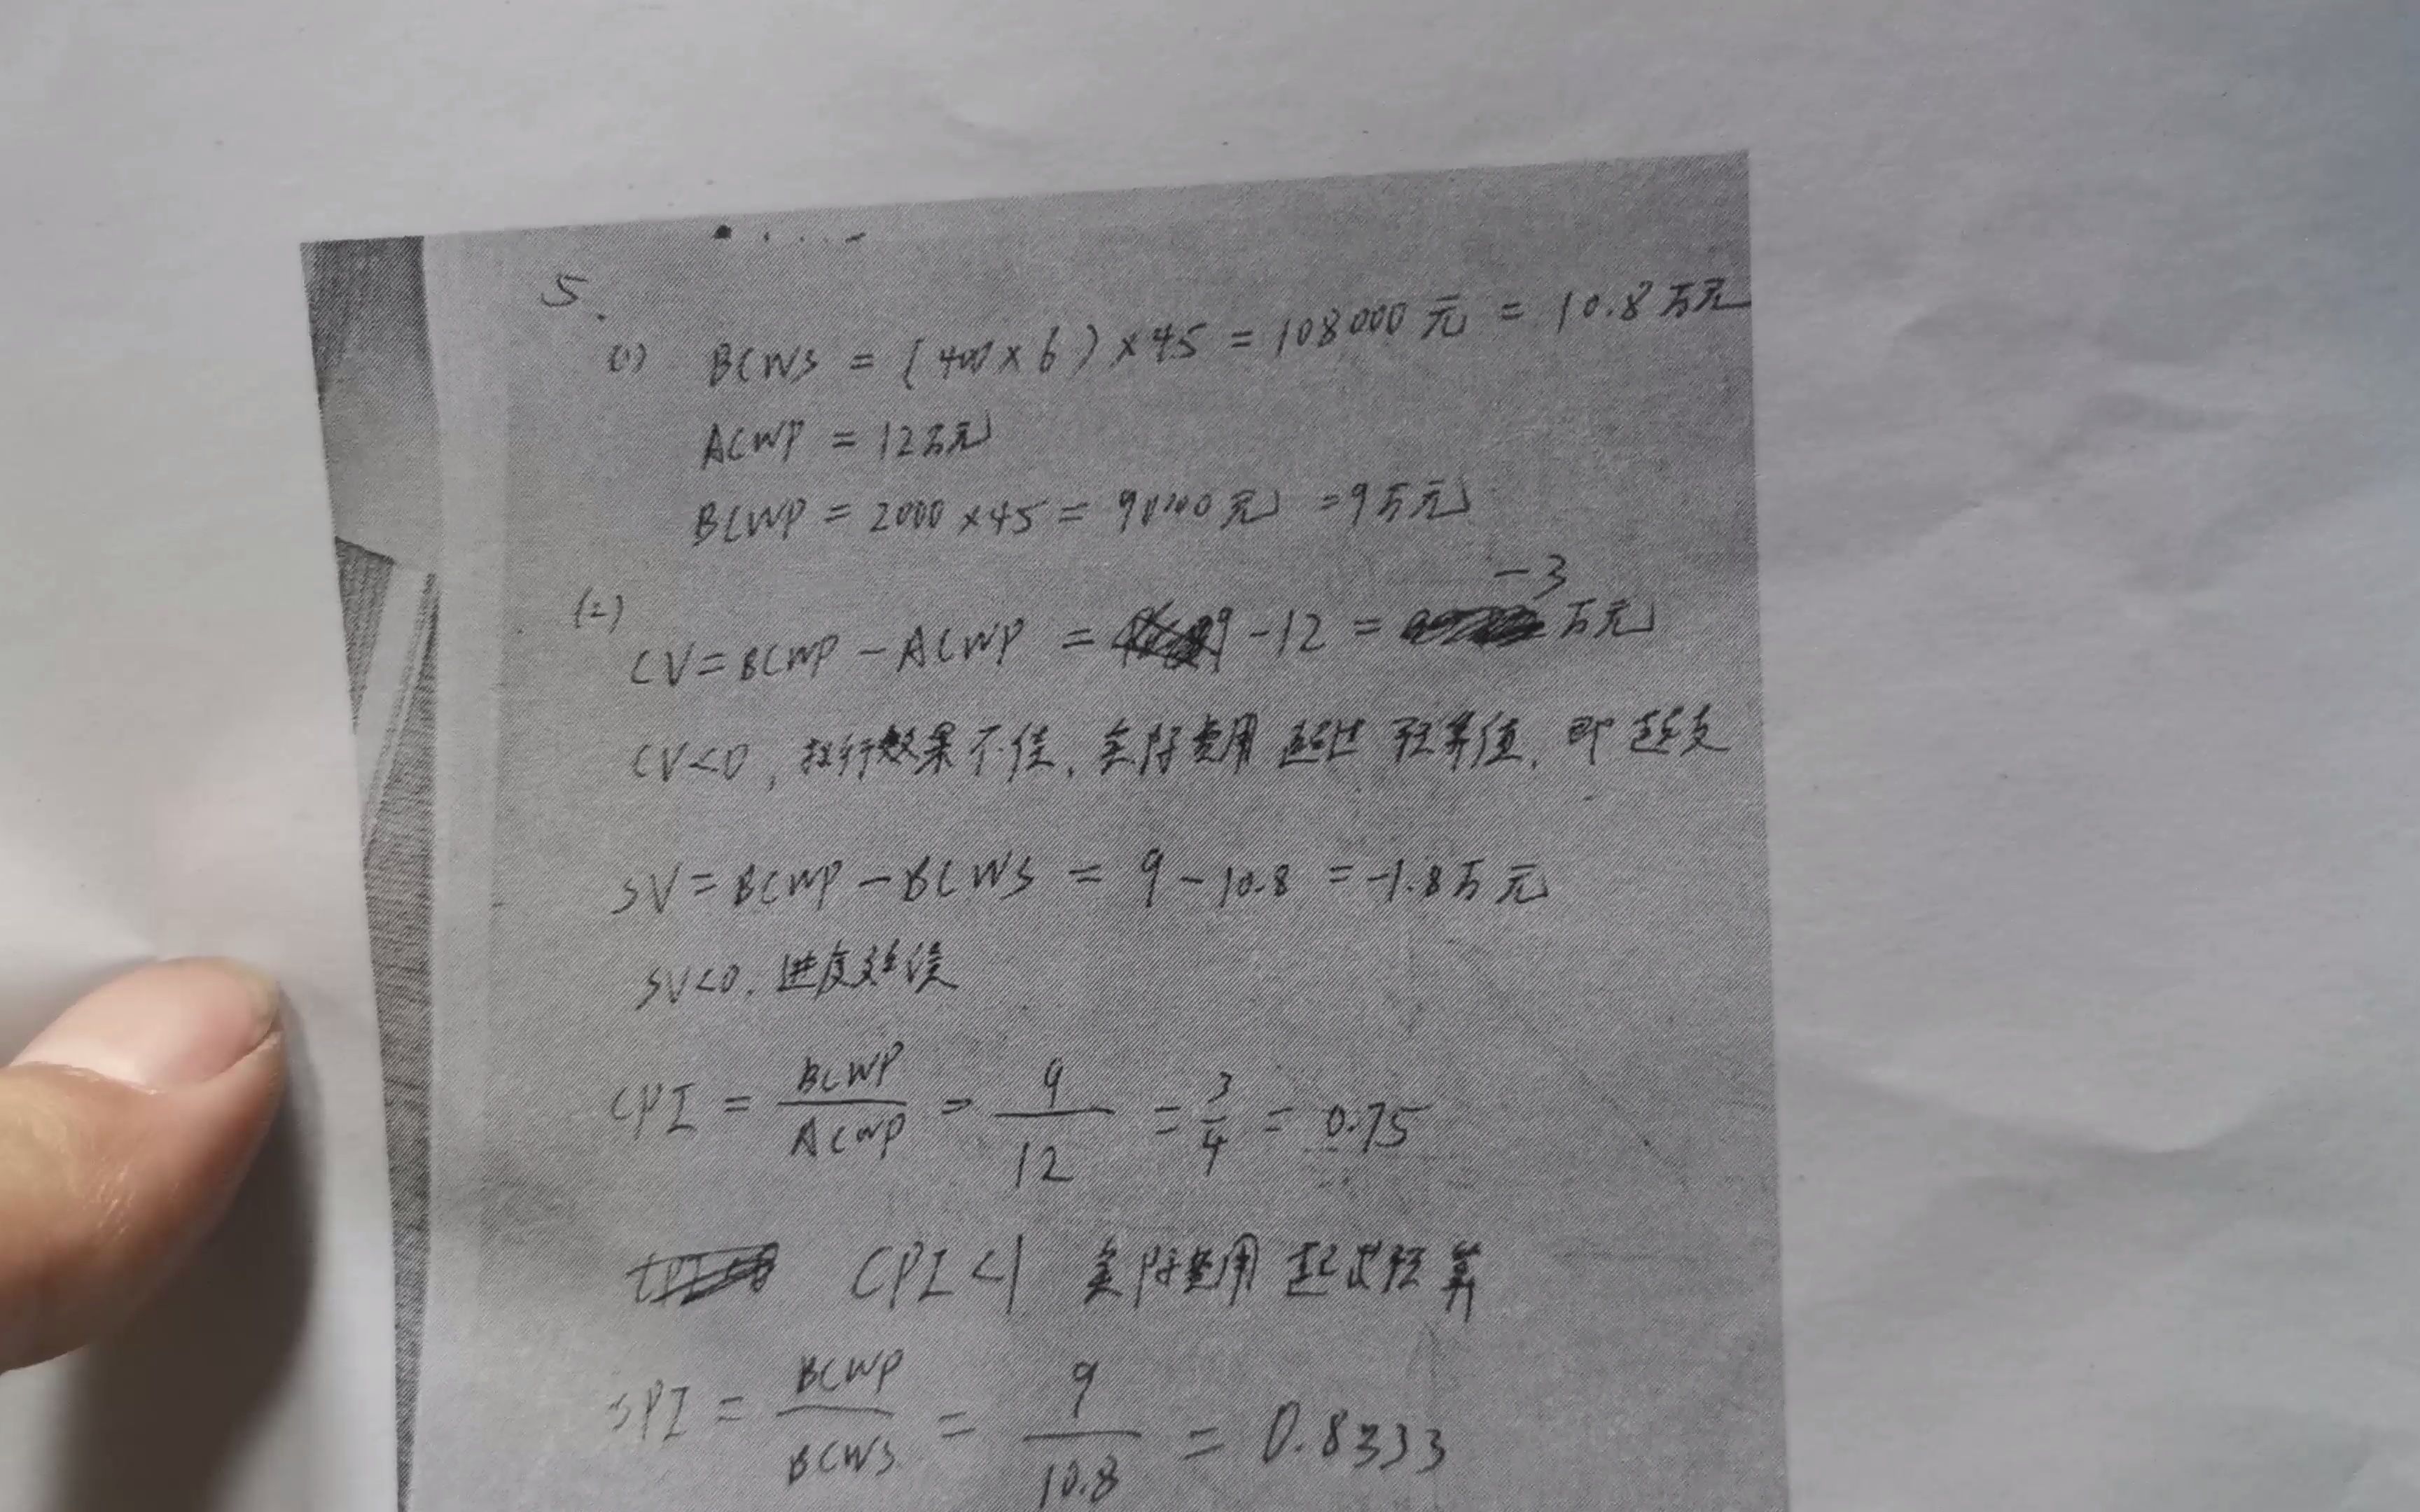 5.
(1) BCWS = (400×6)×45 = 108000元 = 10.8万元
ACWP = 12万元
BCWP = 2000×45 = 90000元 =9万元
(2)
CV=BCWP-ACWP = 9-12 = -3万元
CV<0,执行效果不佳,实际费用超过预算值,即超支
SV=BCWP-BCWS = 9-10.8 =-1.8万元
SV<0.进度延误
CPI = BCWP/ACWP = 9/12 = 3/4 = 0.75
CPI<1 实际费用超出预算
SPI = BCWP/BCWS = 9/10.8 = 0.8333